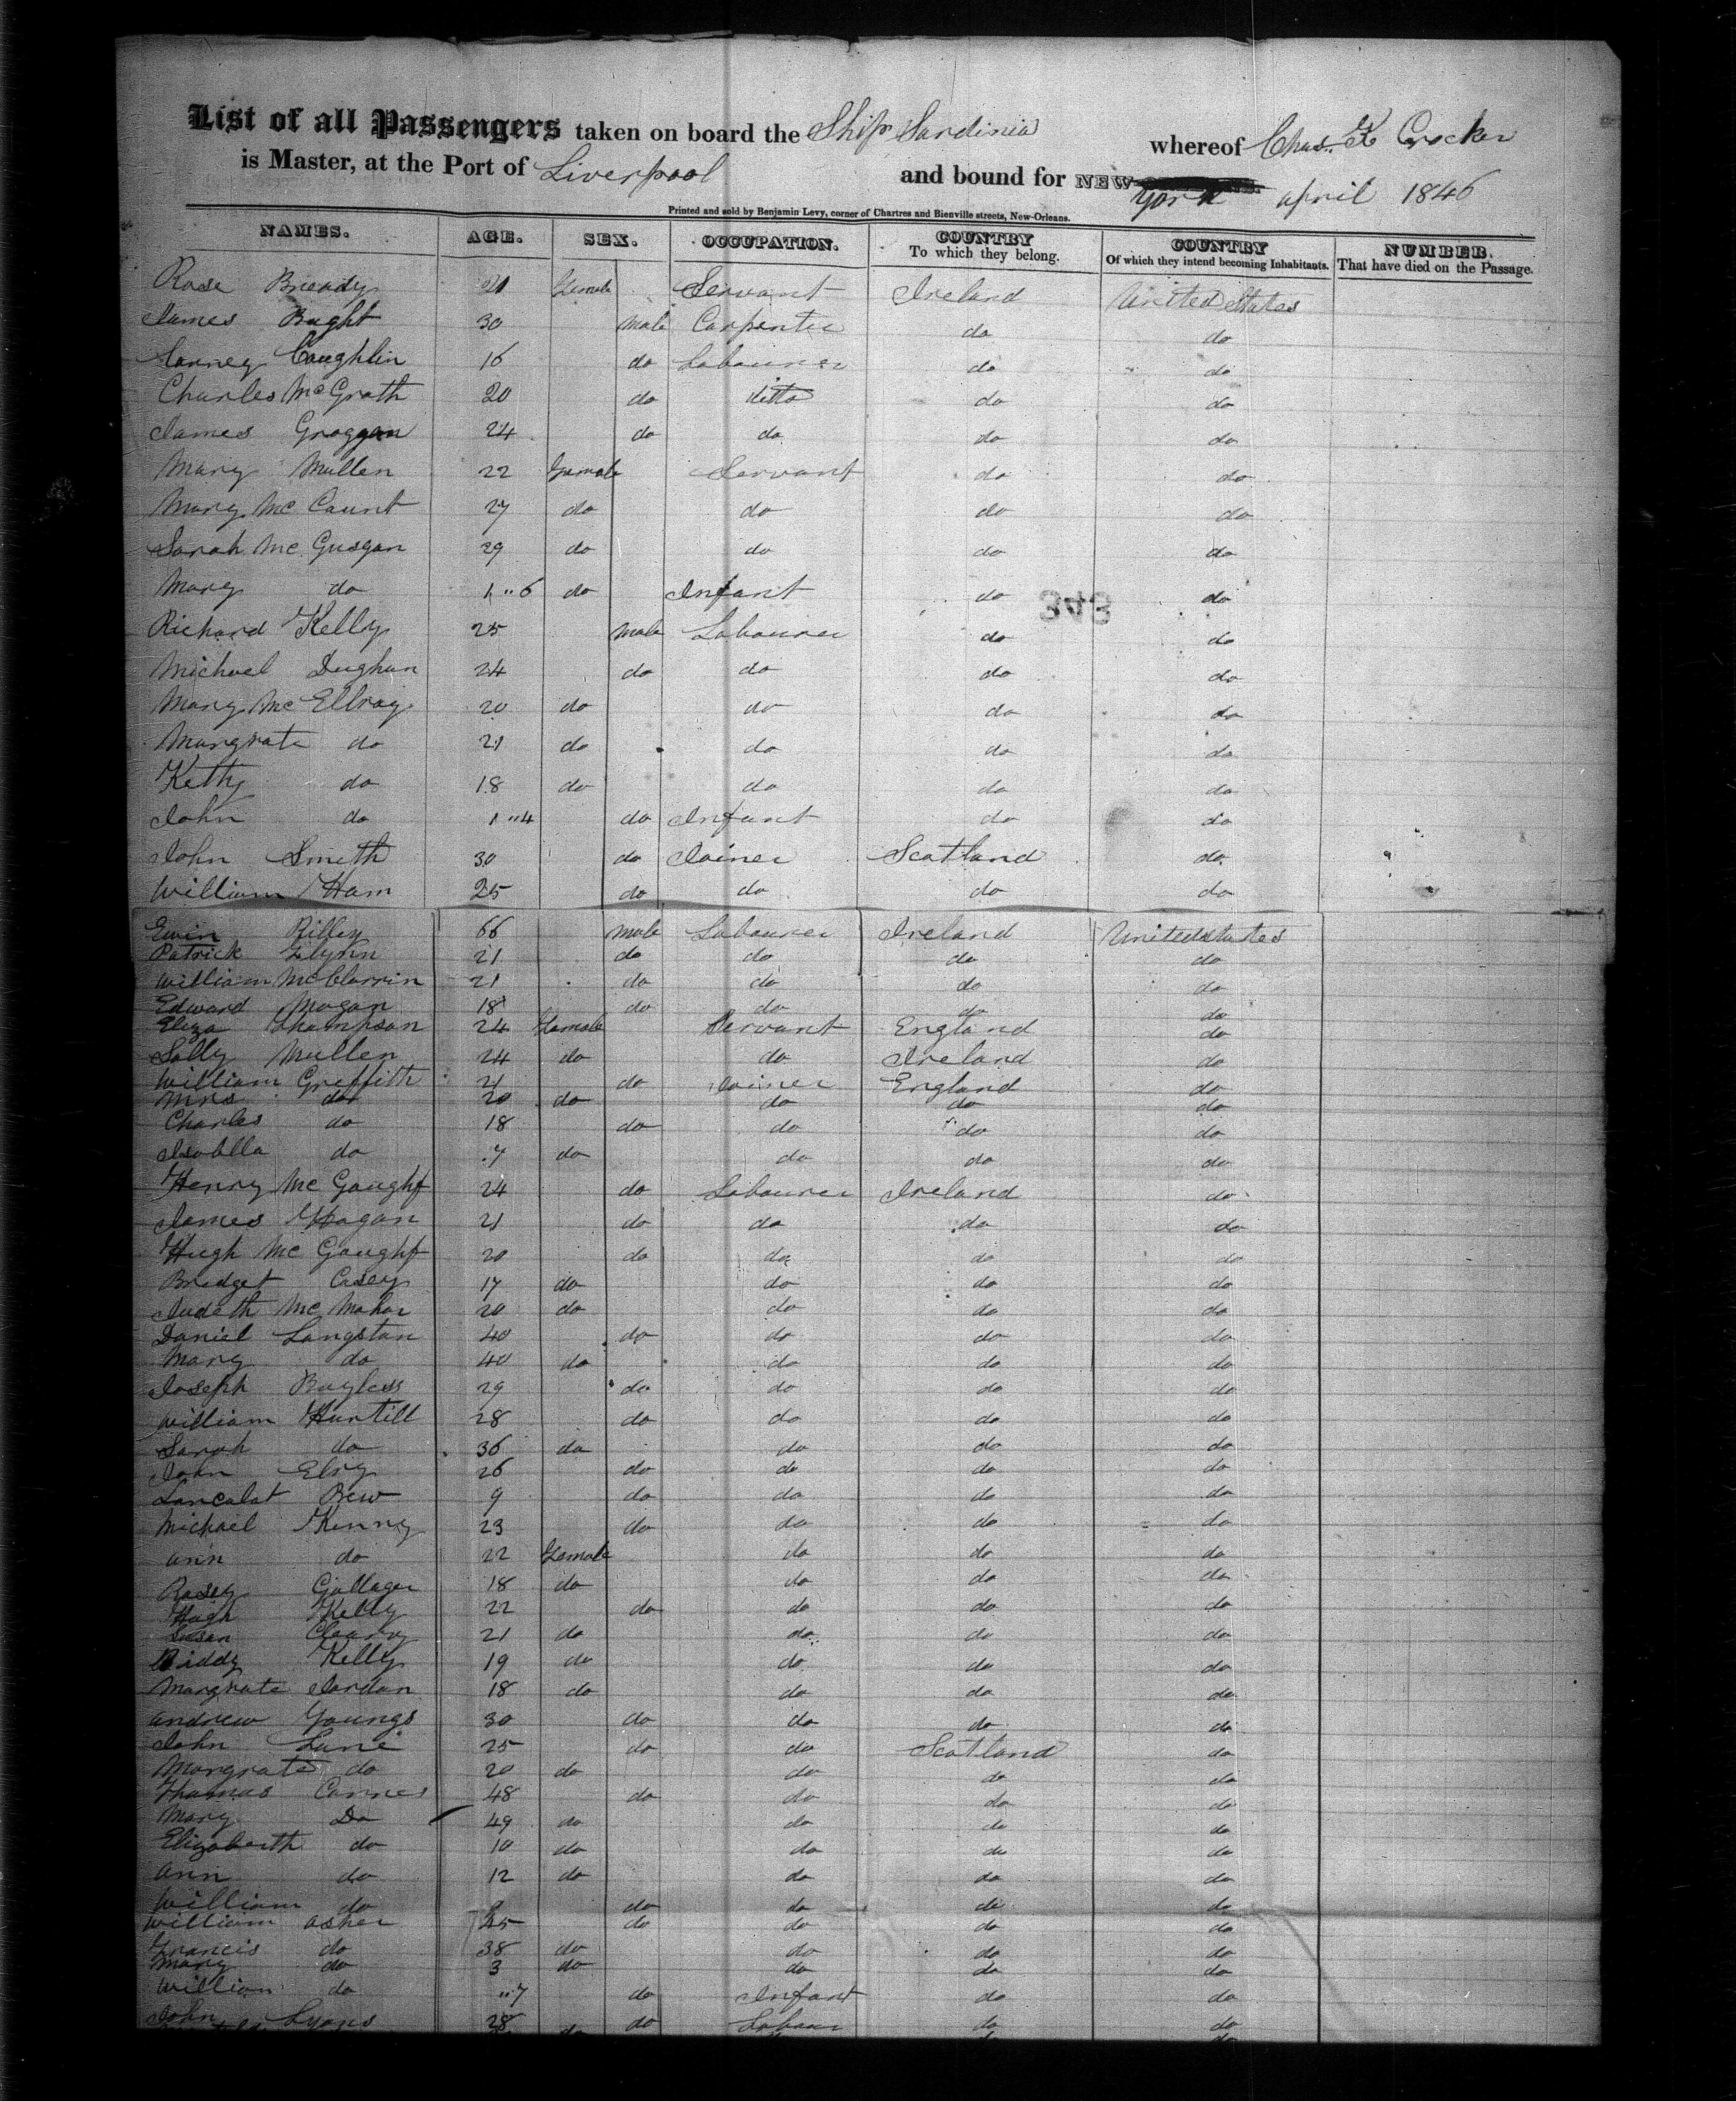 List of all Passengers taken on board the Ship Sardinia whereof Chas. K Crocker
is Master, at the Port of Liverpool and bound for NEW York april 1846
Printed and sold by Benjamin Levy, corner of Chartres and Bienville streets, New-Orleans.
NAMES. AGE. SEX. OCCUPATION. COUNTRY To which they belong. COUNTRY Of which they intend becoming Inhabitants. NUMBER. That have died on the Passage.
Rose 21 Female Servant Ireland United States
James Bright 30 male Carpenter do do
Coughlin 16 do Labourer do do
Charles McGrath 20 do ditto do do
James Groggan 24 do do do do
Mary Mullen 22 Female Servant do do
Mary Mc Count 27 do do do do
Sarah Mc Gusgan 29 do do do do
Mary do 1 "6 do Infant do do
343
Richard Kelly 25 male Labourer do do
Michael Dughan 24 do do do do
Mary Mc Ellroy 20 do do do do
Margrate do 21 do do do do
Kethy do 18 do do do do
John do 1 "4 do Infant do do
John Smith 30 do Joiner Scotland do
William Ham 25 do do do do
Ewin Rilley 66 male Labourer Ireland United states
Patrick Glynn 21 do do do do
William McClarrin 21 do do do do
Edward Magan 18 do do do do
Eliza Thampson 24 Female Servant England do
Sally Mullen 24 do do Ireland do
William Griffith 21 do Joiner England do
Mrs do 20 do do do do
Charles do 18 do do do do
Isablla do 7 do do do do
Henry Mc Gaughf 24 do Labourer Ireland do
James Hagan 21 do do do do
Hugh Mc Gaughf 20 do do do do
Bredget Casey 17 do do do do
Judeth Mc Mahar 20 do do do do
Daniel Langstan 40 do do do do
Mary do 40 do do do do
Joseph Bayless 29 do do do do
William Hurtill 28 do do do do
Sarah do 36 do do do do
John 26 do do do do
Lancalat Bew 9 do do do do
Michael Kenny 23 do do do do
ann do 22 Female do do do
Rosey Gallager 18 do do do do
Hugh Kelly 22 do do do do
Susan Cleary 21 do do do do
Biddy Kelly 19 do do do do
Margrate Jordan 18 do do do do
andrew Youngs 30 do do do do
John Lane 25 do do Scotland do
Margrate do 20 do do do do
Thomas 48 do do do do
Mary Do 49 do do do do
Elizabeth do 10 do do do do
ann do 12 do do do do
William do do do do do
William asher 45 do do do do
Francis do 38 do do do do
Mary do 3 do do do do
William do "7 do Infant do do
John Lyons 28 do Labour do do